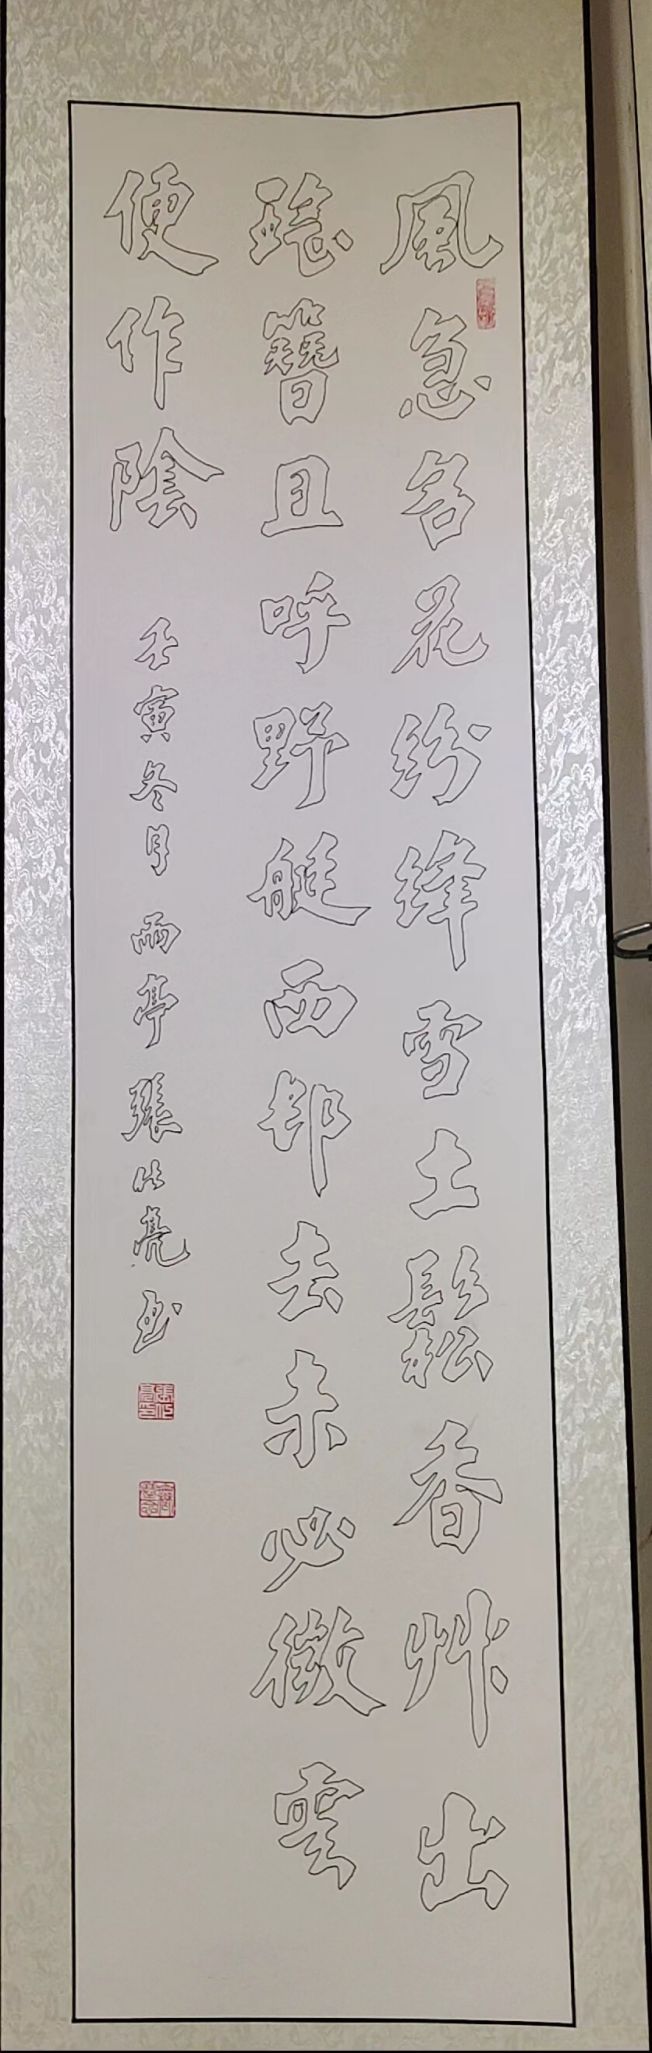 風急名花紛絳雪土鬆香艸出
瑤簪且呼野艇西郤去未必微雲
便作陰
壬寅冬月雨亭張作亮書